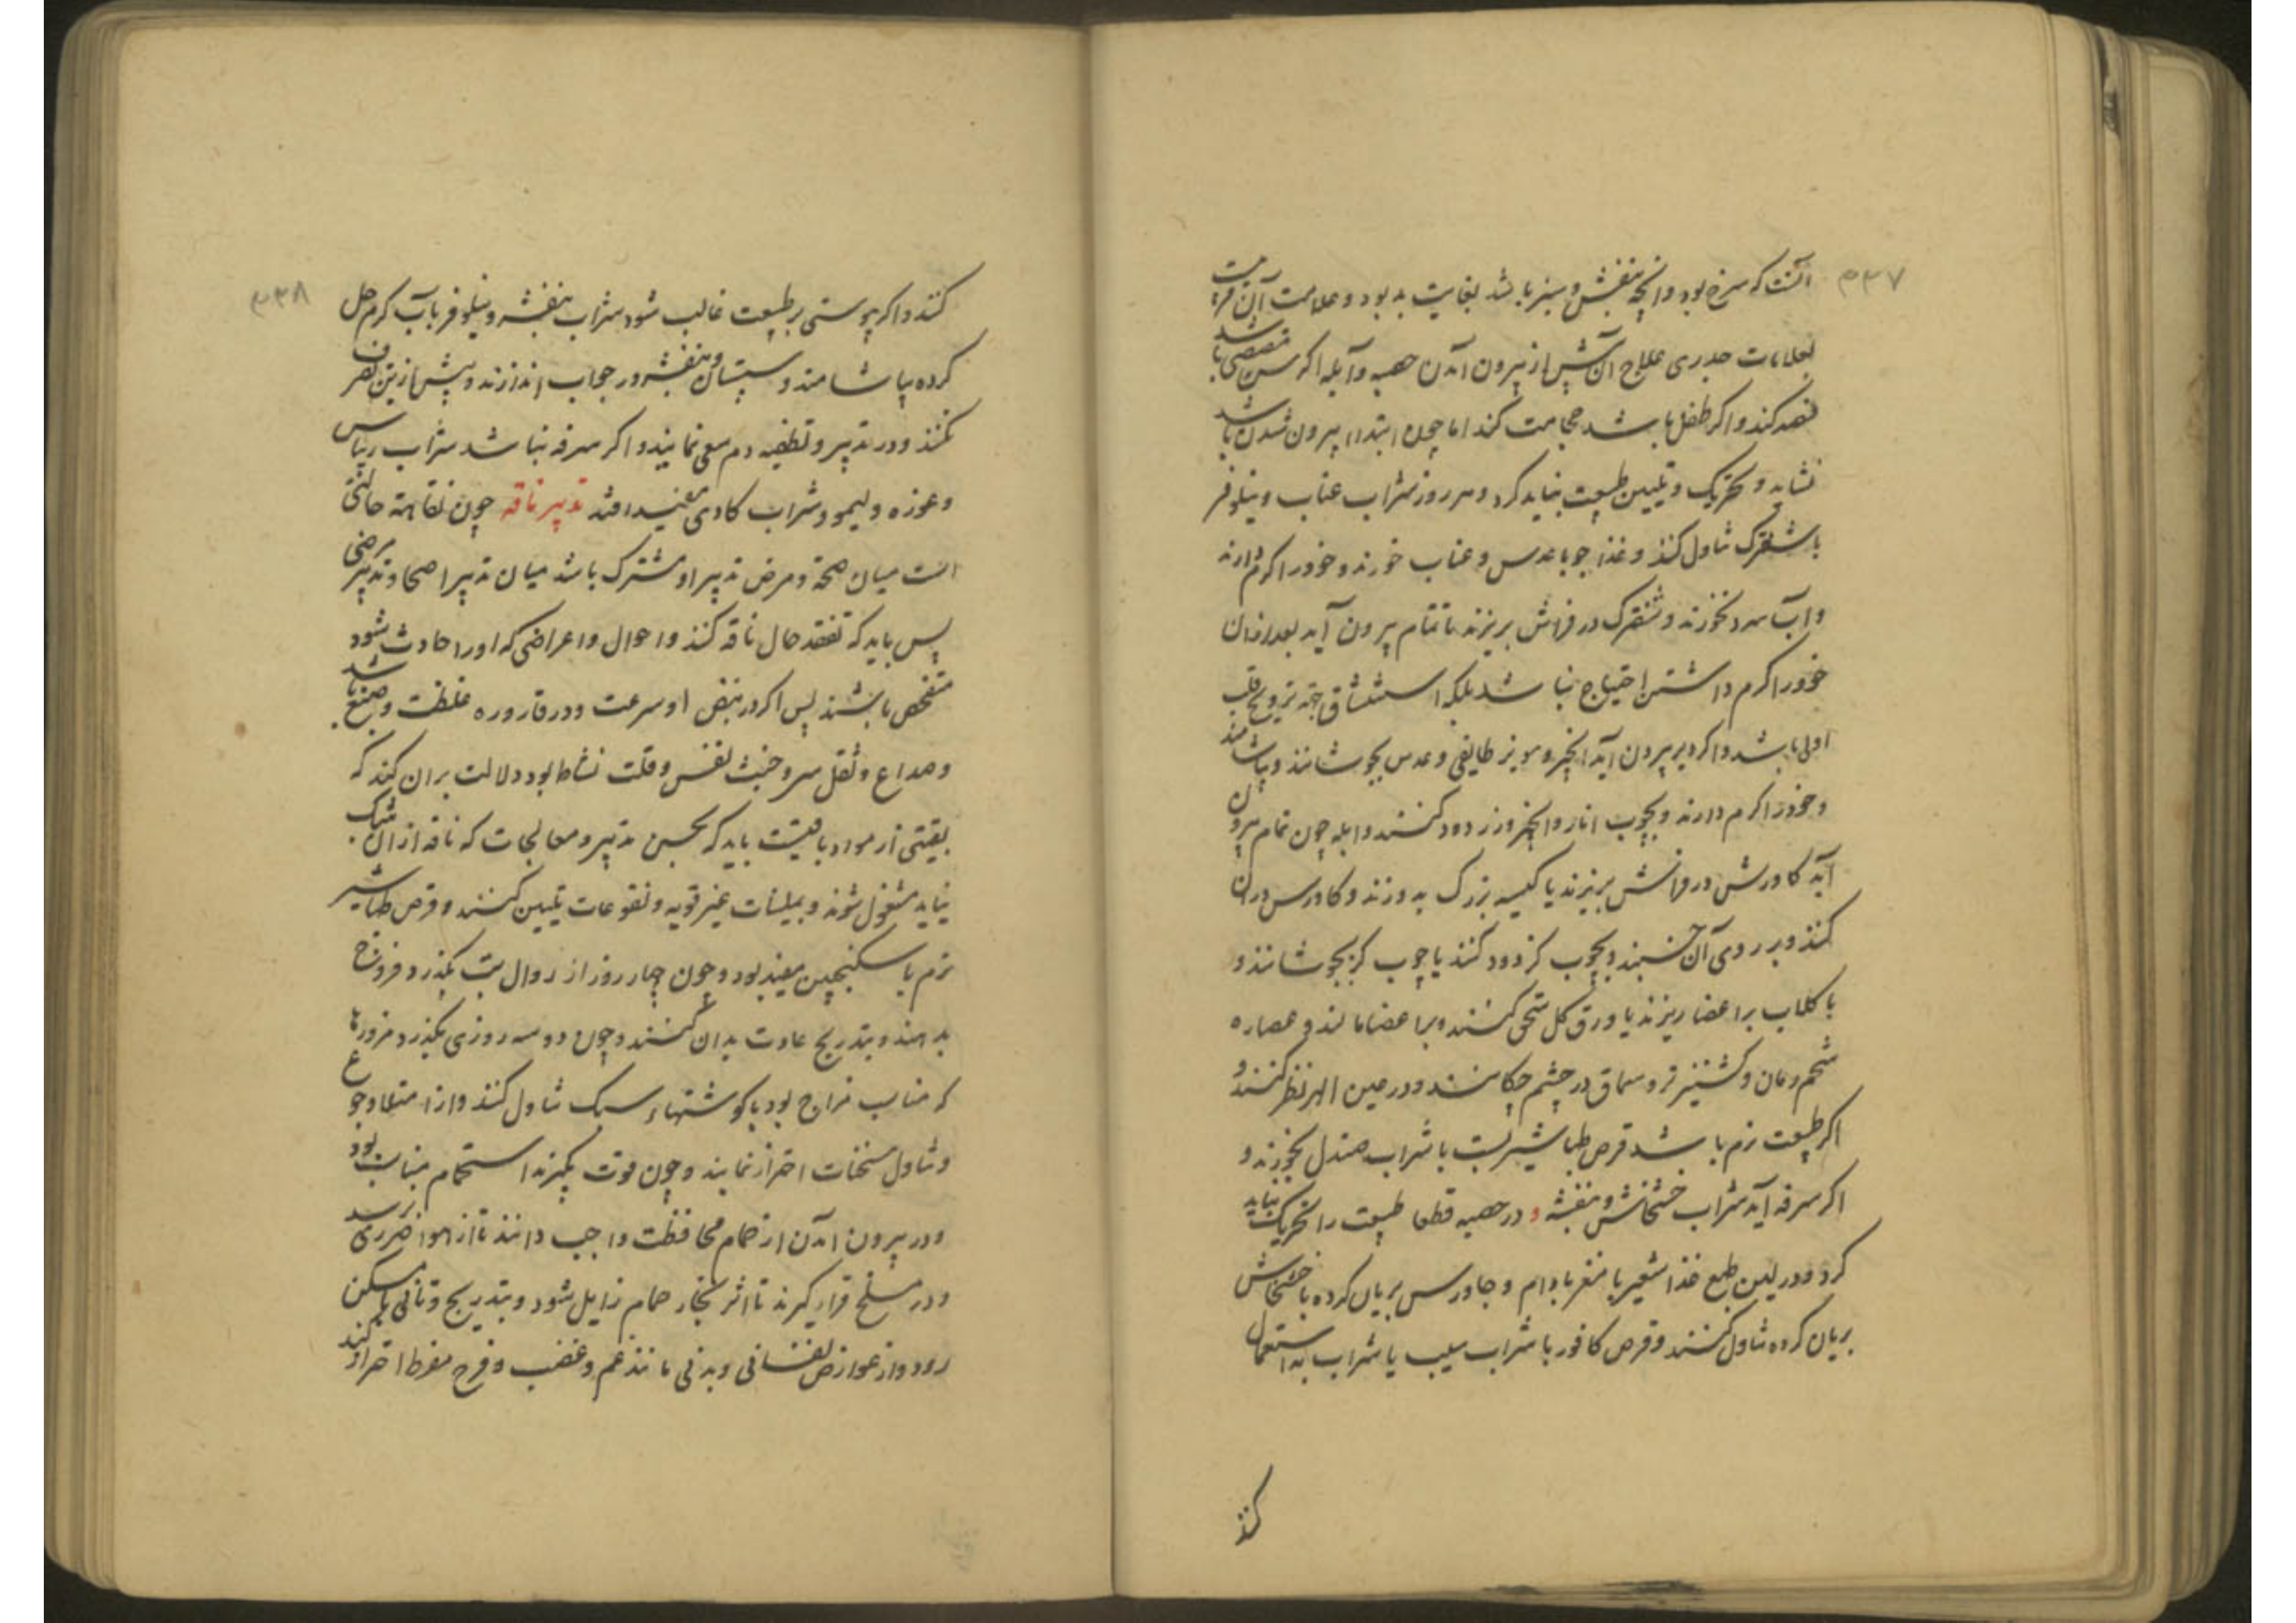 ۵۳۷
آنست که سرخ بود و آنچه بنفش و سبز باشد بغایت بد بود و علامت آن قریبست
بعلامات جدری علاج آن پیش از بیرون آمدن حصبه و آبله اگر سن مقتضی باشد
فصد کند و اگر طفل باشد حجامت کند اما چون ابتداء بیرون شدن باشد
نشاید و تحریک و تلیین طبیعت نباید کرد و هر روز شراب عناب و نیلوفر
با شکر تناول کنند و غذا جو با عدس و عناب خورند و خود را گرم دارند
و آب سرد نخورند و در فراش بریزند تا تمام بیرون آید بعد از آن
خود را گرم داشتن احتیاج نباشد بلکه استنشاق جهة ترویح قلب
اولی باشد و اگر دیر بیرون آید انجیر و مویز طایفی و عدس بجوشانند و بیاشامند
و خود را گرم دارند و بچوب انار و انجیر و زر دود کنند و ابله چون تمام بیرون
آید کاورس در فراش بریزند یا کیسه بزرگ بدوزند و کاورس در آن
کنند و بر روی آن خسبند و بچوب گز دود کنند یا چوب گز بجوشانند و
با گلاب بر اعضا ریزند یا ورق گل سحق کنند و بر اعضا مالند و عصاره
شحم رمان و کشنیز تر و سماق در چشم چکانند و در عین الهر نظر کنند و
اگر طبیعت نرم باشد قرص طباشیر بست با شراب صندل بخورند و
اگر سرفه آید شراب خشخاش و بنفشه و در حصبه قطعا طبیعت را تحریک نباید
کرد و در لین طبع غذا شعیر با مغز بادام و جاورس بریان کرده با خشخاش
بریان کرده تناول کنند و قرص کافور با شراب سیب یا شراب به استعمال
کنند
۵۳۸
کنند و اگر یبوستی بر طبیعت غالب شود شراب بنفشه و نیلوفر بآب گرم حل
کرده بیاشامند و سپستان و بنفشه در جواب اندازند و بیش ازین تصرف
نکنند و در تدبیر و تطفیه دم سعی نمایند و اگر سرفه نباشد شراب ریباس
و غوره و لیمو و شراب کادی مفید افتد تدبیر ناقه چون نقاهة حالتی
است میان صحة و مرض تدبیر او مشترک باشد میان تدبیر اصحا و تدبیر مرضی
پس باید که تفقد حال ناقه کنند و احوال و اعراضی که او را حادث شود
متفحص باشند پس اگر در نبض او سرعت و در قاروره غلظت و صبغ باشد
و صداع و ثقل سر و خبث نفس و قلت نشاط بود دلالت بر آن کند که
بقیتی از مواد باقیست باید که بحسن تدبیر و معالجات که ناقه از آن
نیاید مشغول شوند و بملینات غیر قویه و نقوعات تلیین کنند و قرص طباشیر
نرم با سکنجبین مفید بود و چون چهار روز از زوال تب بگذرد فروخ
بدهند و بتدریج عادت بدان کنند و چون دو سه روزی بگذرد مزورها
که مناسب مزاج بود با گوشتهاء سبک تناول کنند و از امتلا و جوع
و تناول مسخنات احتراز نمایند و چون قوت بگیرند استحمام مناسب بود
و در بیرون آمدن از حمام محافظت واجب دانند تا از هوا ضرری نرسد
و در مسلخ قرار گیرند تا اثر بخار حمام زایل شود و بتدریج و تانی با مسکن
رود و از عوارض نفسانی و بدنی مانند غم و غضب و فرح مفرط احتراز کنند